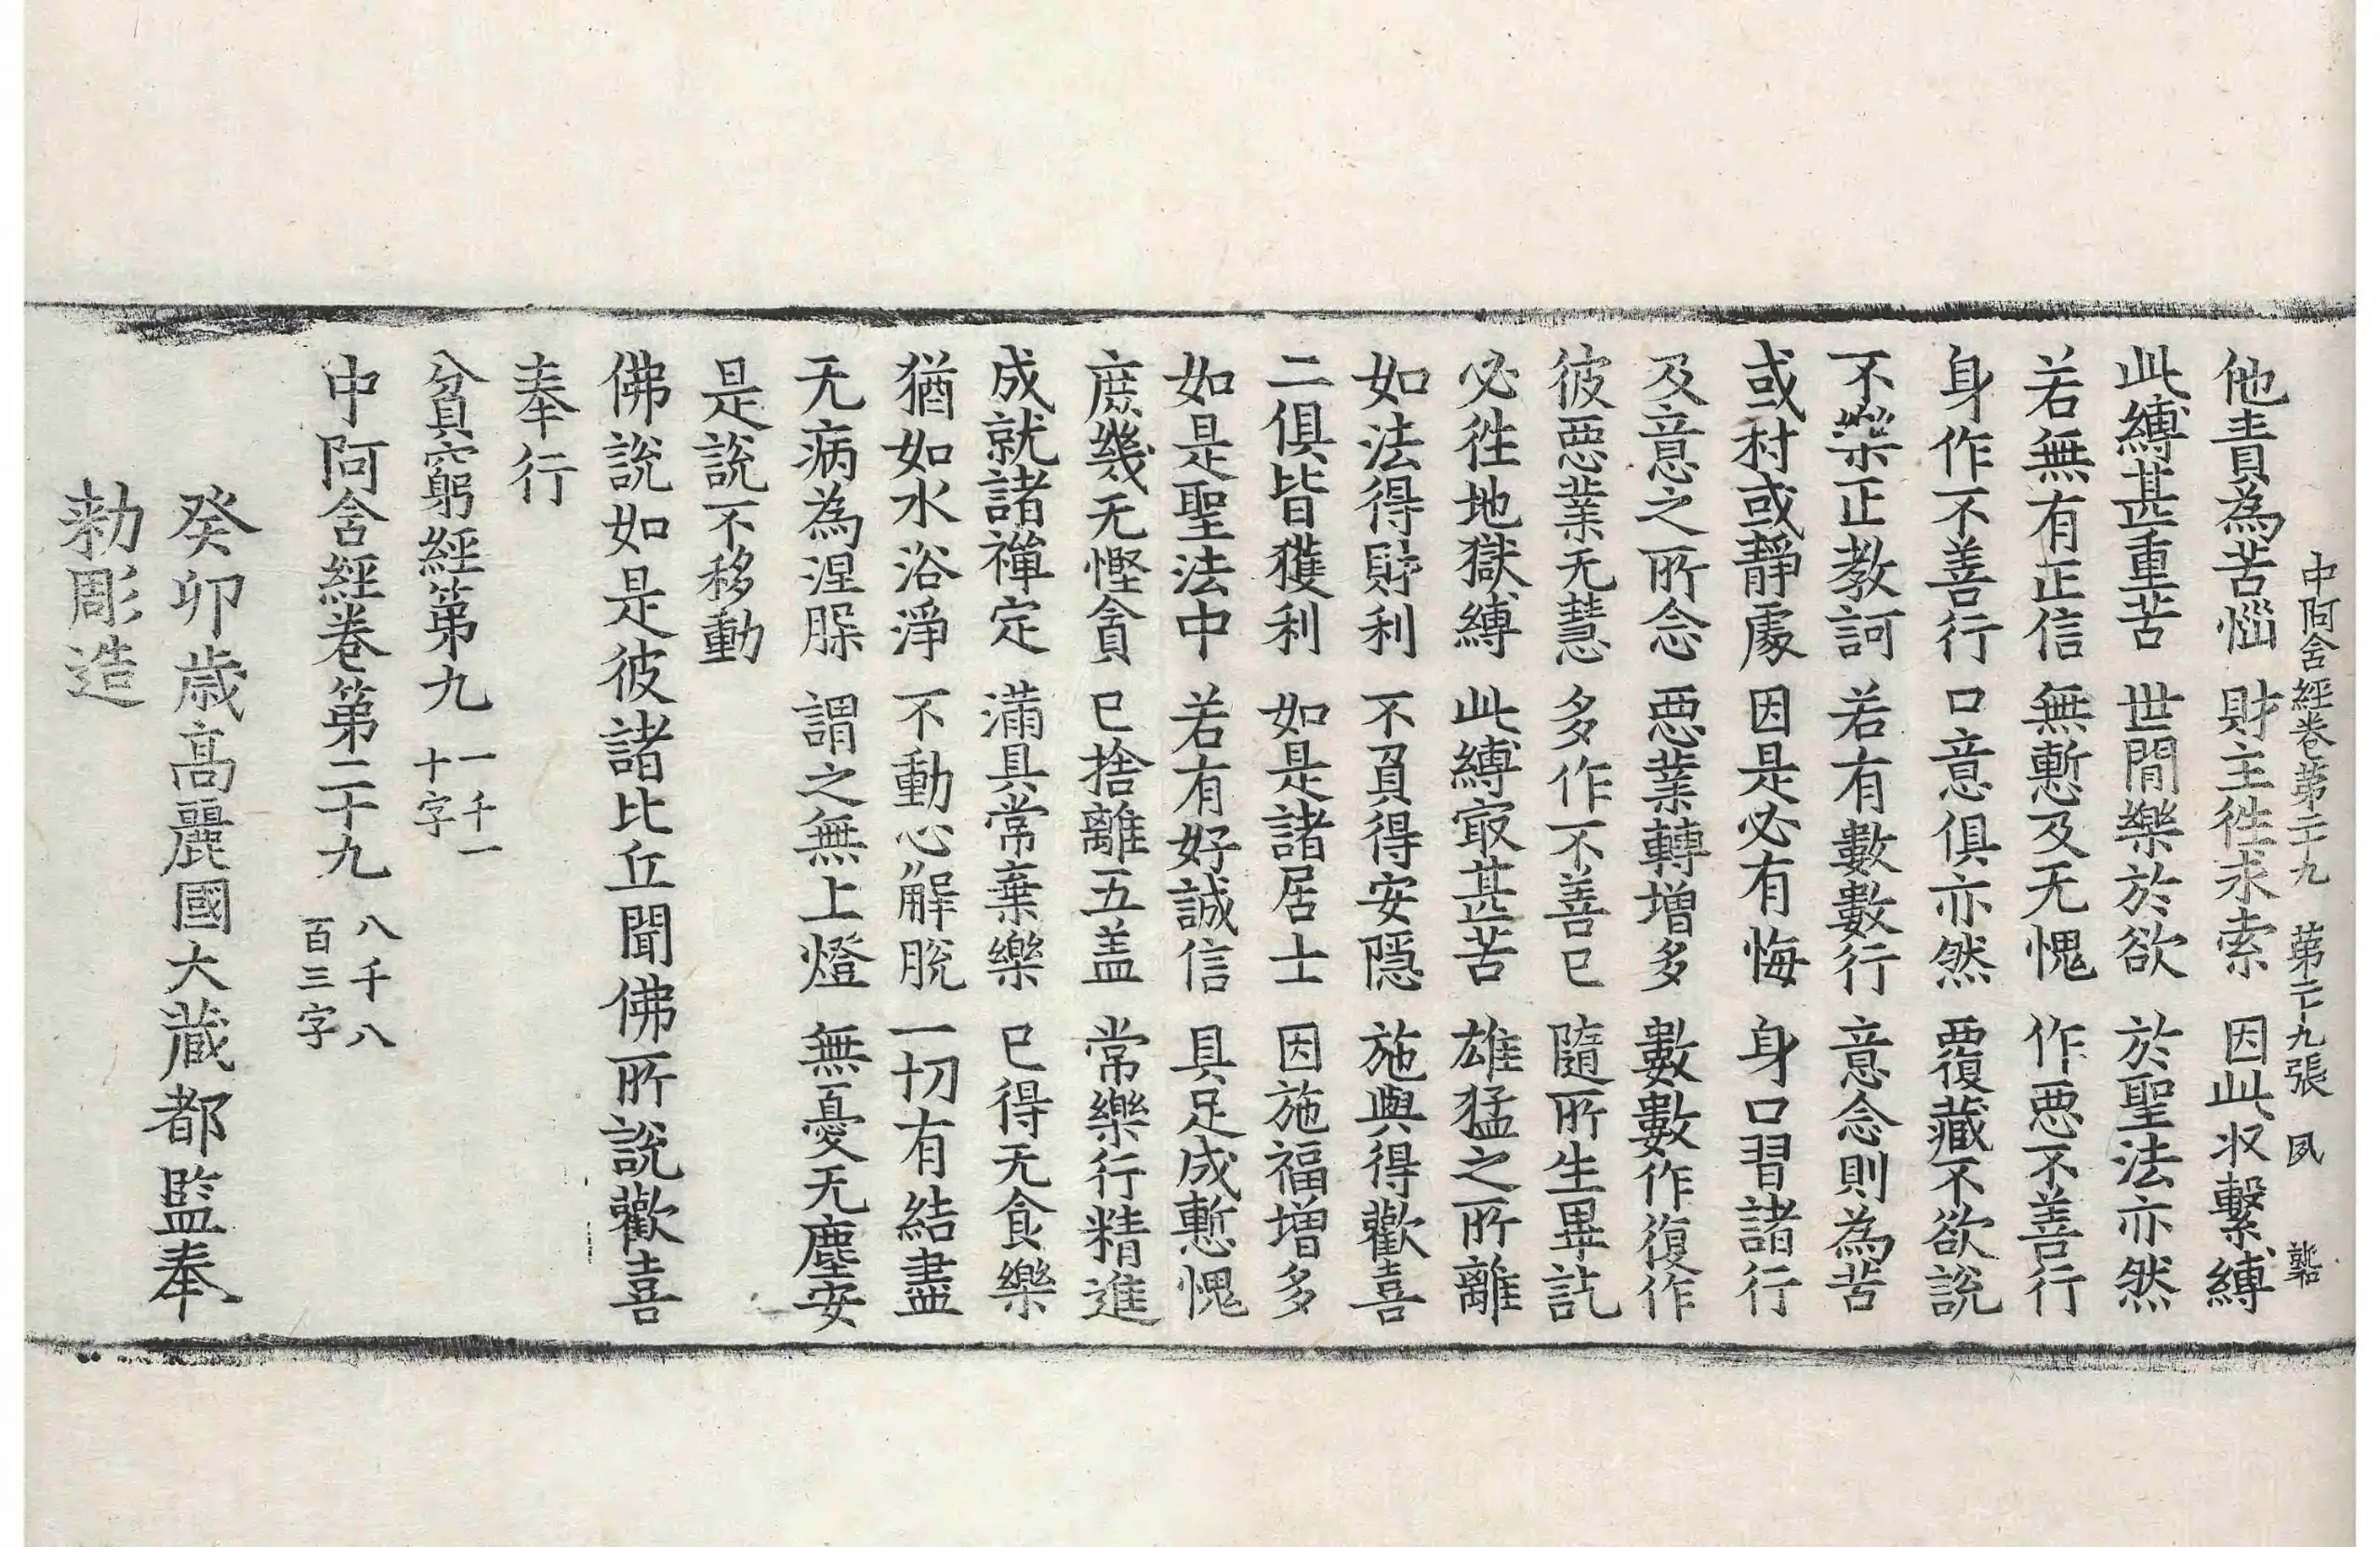 中阿含經卷第二十九 第二十九張 夙
他責為苦惱 財主徃求索 因此収繫縛
此縛甚重苦 世間樂於欲 於聖法亦然
若無有正信 無慙及无愧 作惡不善行
身作不善行 口意俱亦然 覆藏不欲說
不樂正教訶 若有數數行 意念則為苦
或村或靜處 因是必有悔 身口習諸行
及意之所念 惡業轉增多 數數作復作
彼惡業无慧 多作不善已 隨所生畢訖
必徃地獄縛 此縛㝡甚苦 雄猛之所離
如法得財利 不負得安隱 施與得歡喜
二俱皆獲利 如是諸居士 因施福增多
如是聖法中 若有好誠信 具足成慙愧
庶幾无慳貪 已捨離五盖 常樂行精進
成就諸禪定 滿具常棄樂 已得无食樂
猶如水浴淨 不動心解脫 一切有結盡
无病為涅槃 謂之無上燈 無憂无塵安
是說不移動
佛說如是彼諸比丘聞佛所說歡喜
奉行
貧窮經第九 一千一十字
中阿含經卷第二十九 八千八百三字
癸卯歲高麗國大藏都監奉
勑彫造